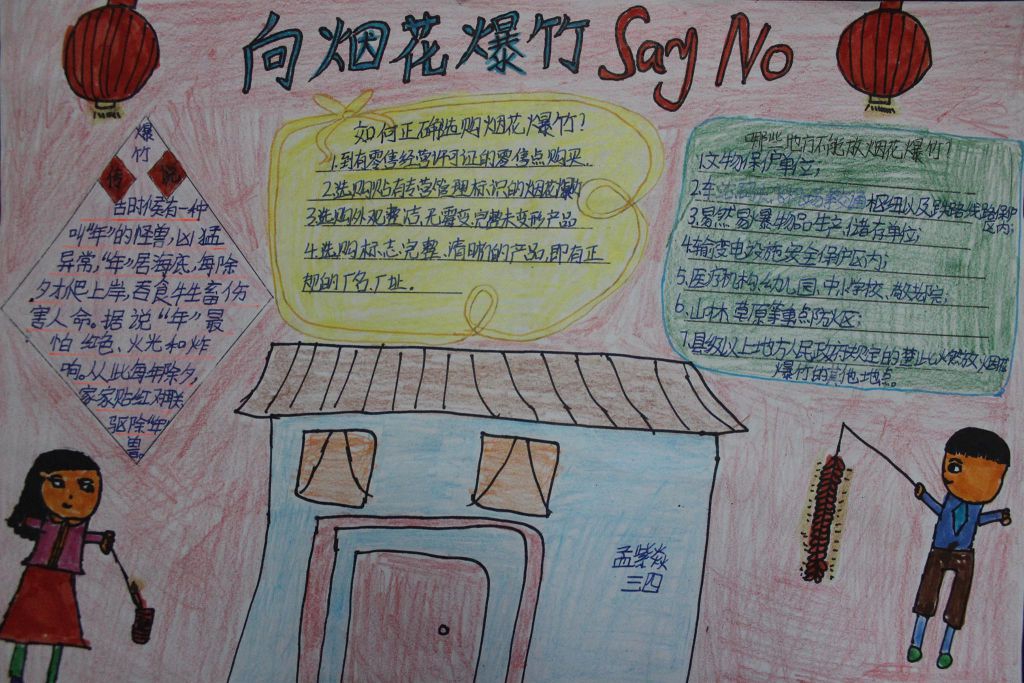 向烟花爆竹 Say No
爆
竹
传说
古时候有一种
叫"年"的怪兽,凶猛
异常,"年"居海底,每除
夕才爬上岸,吞食牲畜伤
害人命。据说"年"最
怕红色、火光和炸
响。从此每年除夕,
家家贴红对联
驱除"年"
兽。
如何正确选购烟花爆竹?
1.到有零售经营许可证的零售点购买.
2.选购贴有专营管理标识的烟花爆竹
3.选购外观整洁,无霉变,完整未变形产品
4.选购标志完整、清晰的产品,即有正
规的厂名,厂址.
哪些地方不能放烟花爆竹?
1.文物保护单位;
2.车 枢纽以及铁路线路保护
区内;
3.易燃易爆物品生产,储存单位;
4.输变电设施安全保护区内;
5.医疗机构,幼儿园,中小学校,敬老院;
6.山林,草原等重点防火区;
7.县级以上地方人民政府规定的禁止燃放烟花
爆竹的其他地点。
孟紫焱
三四